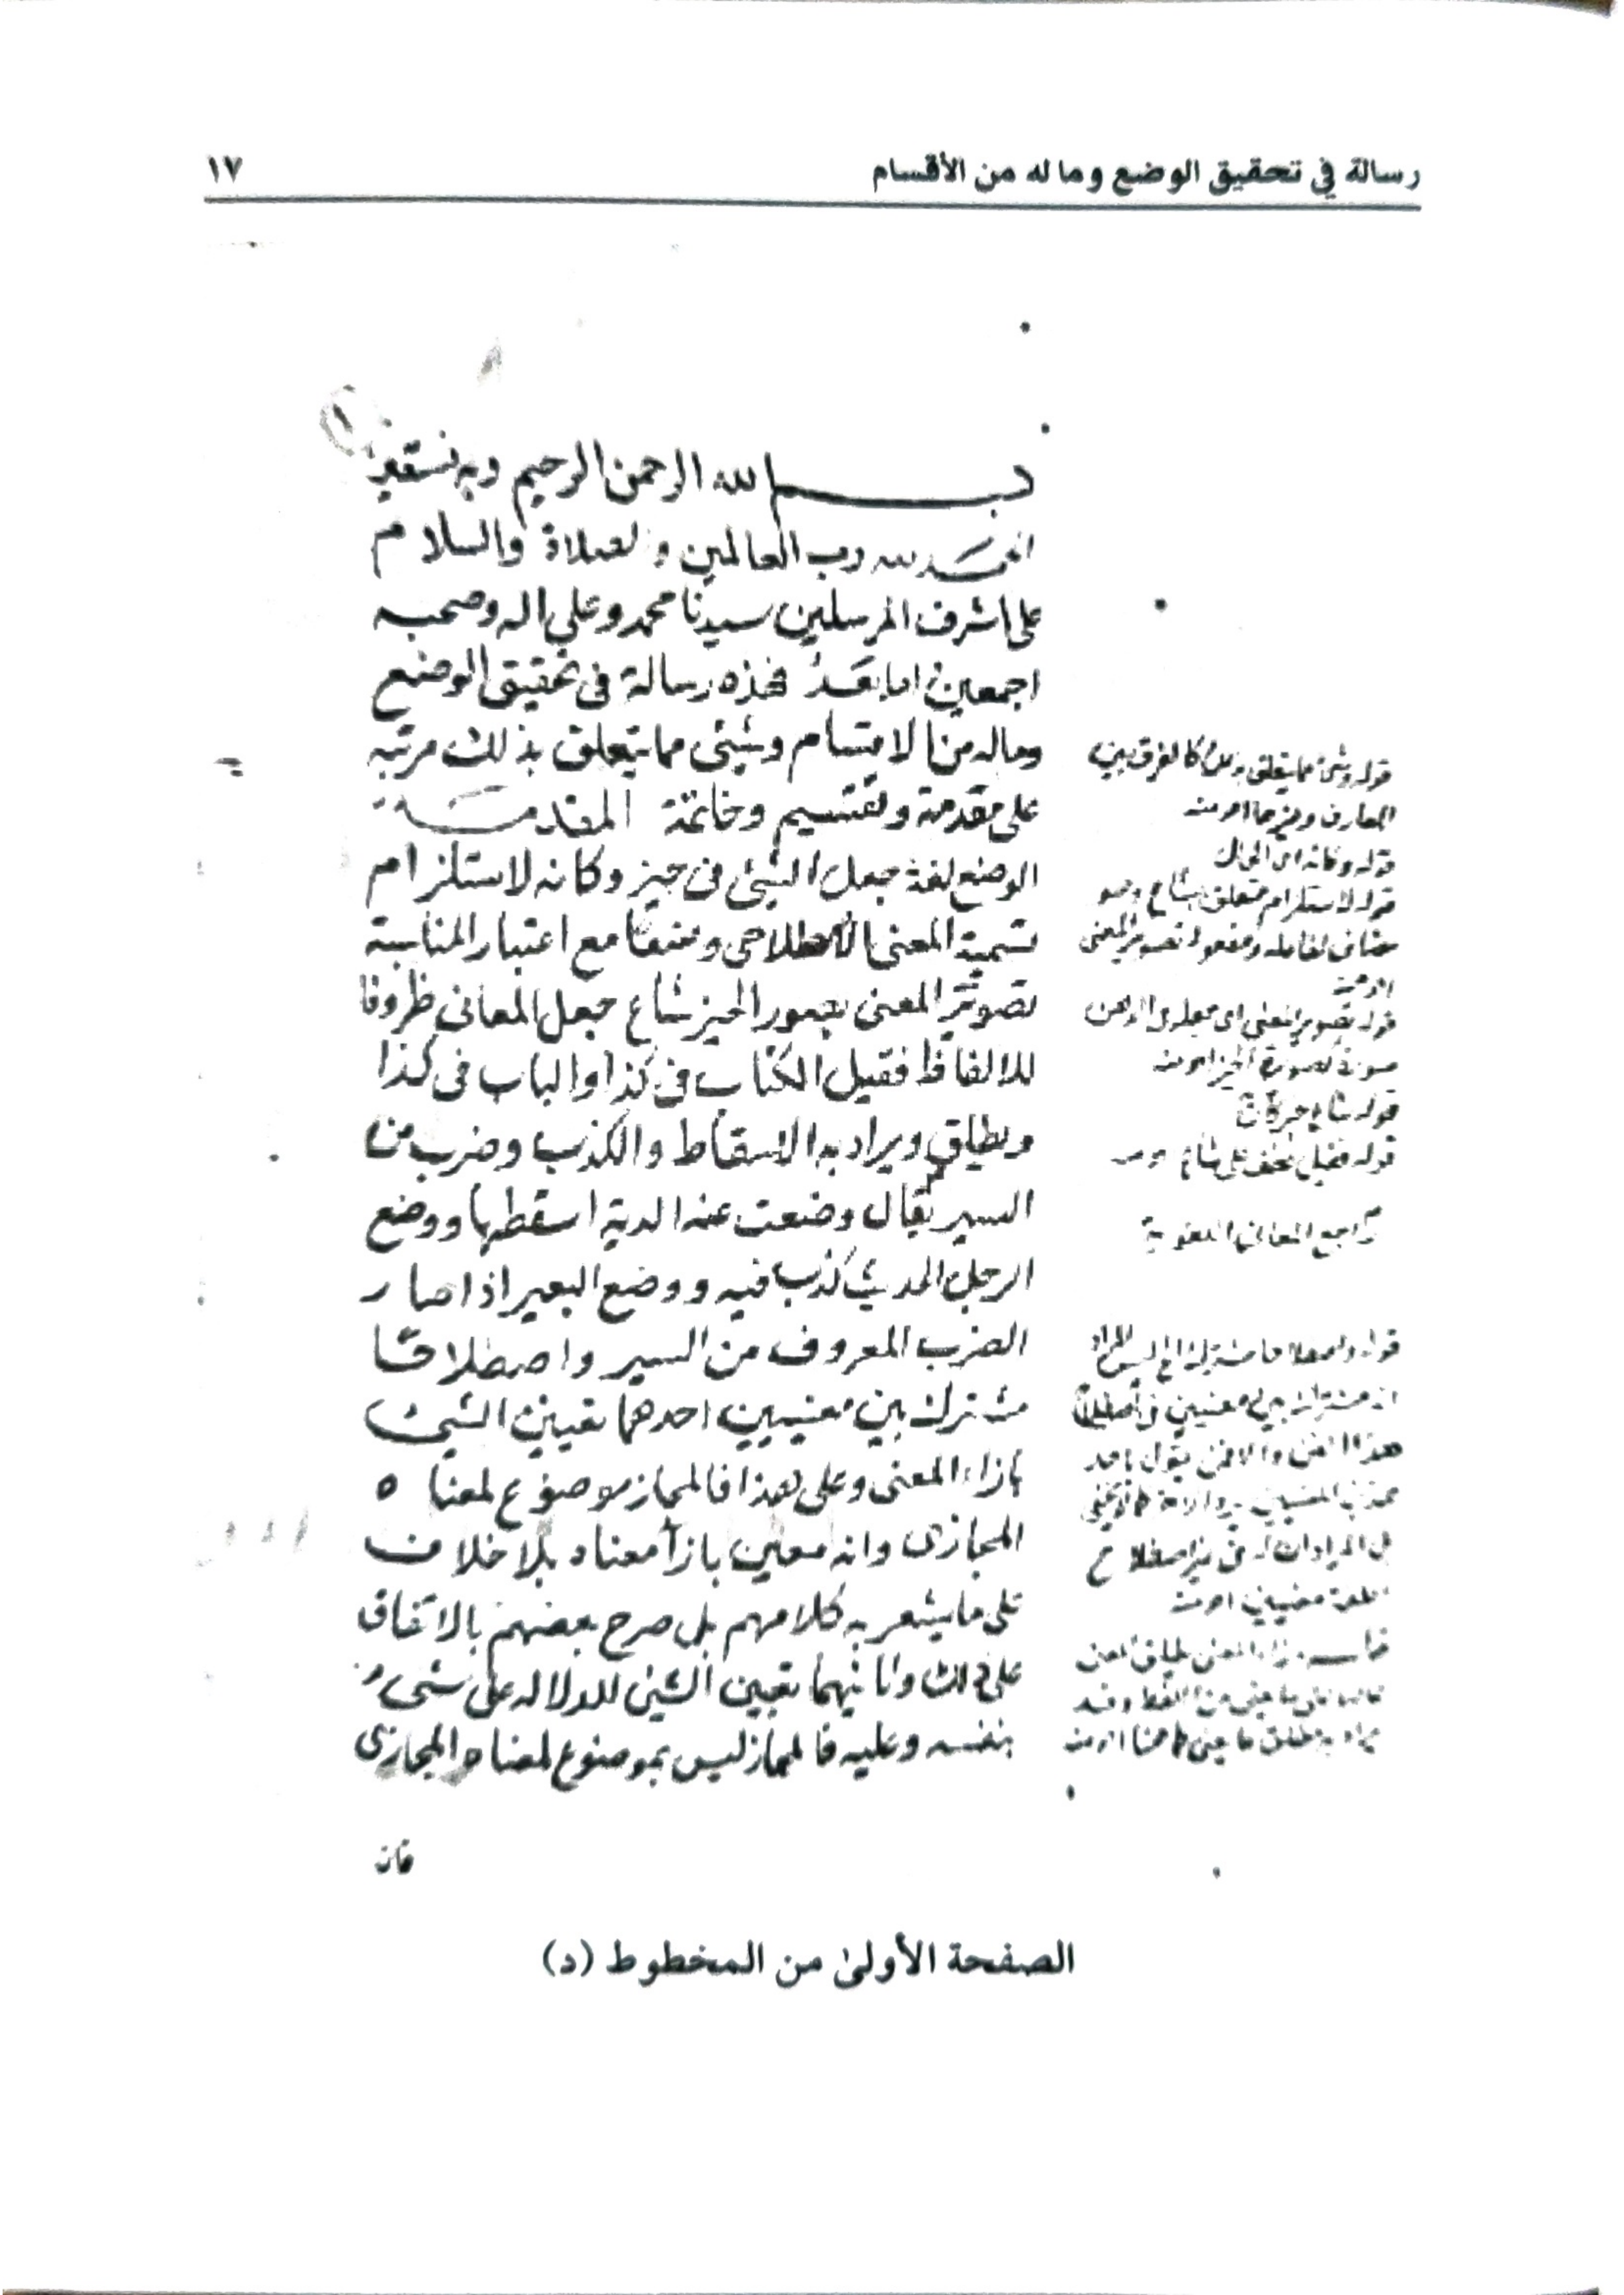 رسالة في تحقيق الوضع وما له من الأقسام
١٧
بسم الله الرحمن الرحيم وبه نستعين
الحمد لله رب العالمين والصلاة والسلام
على اشرف المرسلين سيدنا محمد وعلى اله وصحبه
اجمعين اما بعد فهذه رسالة فى تحقيق الوضع
وماله من الاقسام وشيئ مما يتعلق بذلك مرتبه
على مقدمة وتقسيم وخاتمة المقدمة
الوضع لغة جعل الشيئ فى حيز وكانه لاستلزام
تسمية المعنى الاصطلاحى وضعا مع اعتبار المناسبة
تصوير المعنى بصور الحيز شاع جعل المعانى ظروفا
للالفاظ فقيل الكتاب فى كذا والباب فى كذا
ويطلق ويراد به الاسقاط والكذب وضرب من
السير يقال وضعت عنه الدية اسقطها ووضع
الرجل الحديث كذب فيه ووضع البعير اذا صار
الضرب المعروف من السير واصطلاحا
مشترك بين معنيين احدهما تعيين الشيئ
بازاء المعنى وعلى هذا فالمجاز موضوع لمعناه
المجازى وانه معين بازأ معناه بلا خلاف
على ما يشعر به كلامهم بل صرح بعضهم بالاتفاق
على ذلك وثانيهما تعيين الشيئ للدلاله على شيئ
بنفسه وعليه فالمجاز ليس بموضوع لمعناه المجازى
فان
قوله وشئ مما يتعلق بذلك كالفرق بين
المعارف وغيرها اه منه
قوله وكانه اى الحال
قوله لاستلزام متعلق بشاع وهو
مضاف لفاعله ومفعوله تصوير المعنى
اه منه
قوله تصوير المعنى اى جعله فى الذهن
صورة كصورة الحيز اه منه
قوله شاع خبر كان
قوله فقيل عطف على شاع
راجع المعانى اللغوية
قوله واصطلاحا مشترك الخ ليس المراد
انه مشترك بين معنيين فى اصطلاح
هذا الفن
معنيين اه منه
الصفحة الأولى من المخطوط (د)